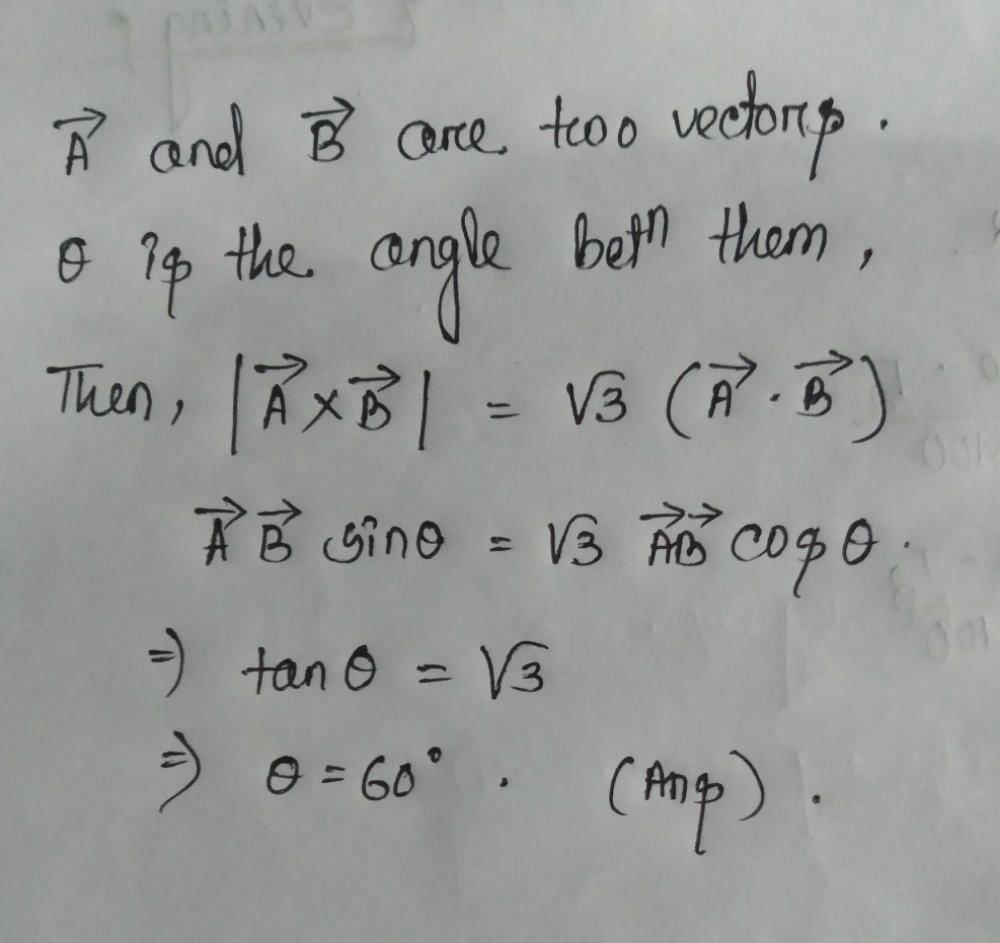 A⃗ and B⃗ are two vectors.
θ is the angle betⁿ them,
Then, |A⃗ × B⃗| = √3 (A⃗ · B⃗)
A⃗ B⃗ sinθ = √3 A⃗B⃗ cosθ.
⇒ tan θ = √3
⇒ θ = 60° . (Ans).